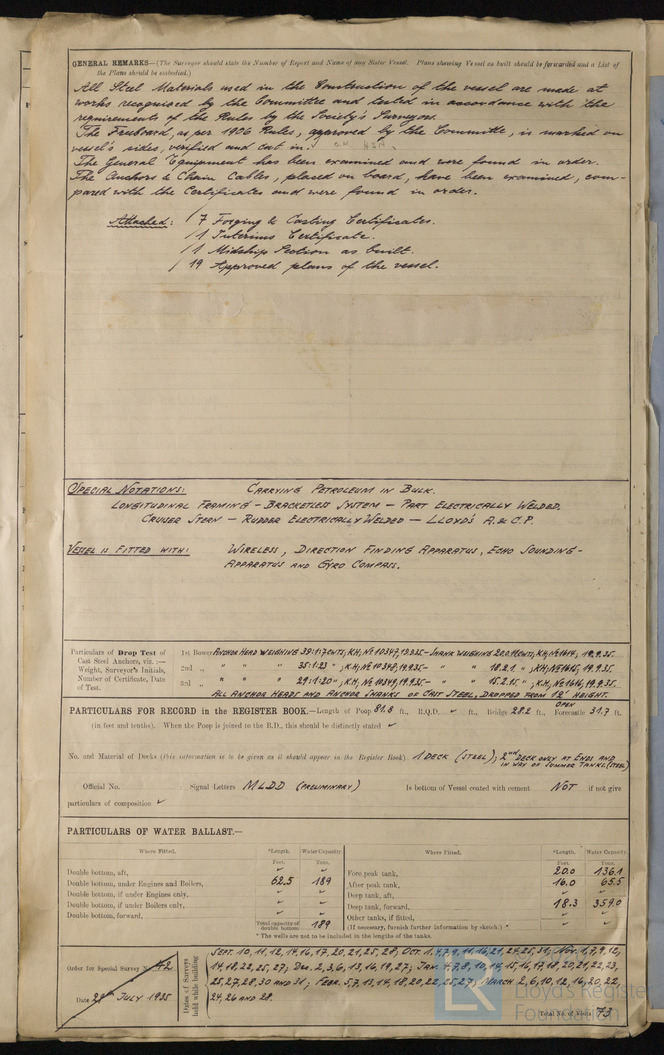 GENERAL REMARKS—(The Surveyor should state the Number of Report and Name of any Sister Vessel. Plans showing Vessel as built should be forwarded and a List of
the Plans should be embodied.)
All Steel Materials used in the Construction of the vessel are made at
works recognised by the Committee and tested in accordance with the
requirements of the Rules by the Society's Surveyors.
The Freeboard, as per 1906 Rules, approved by the Committe, is marked on
vessel's sides, verified and cut in.
The General Equipment has been examined and were found in order.
The Anchors & Chain Cables, placed on board, have been examined, com-
pared with the Certificates and were found in order.
Attached: / 7 Forging & Casting Certificates.
/ 1 Interims Certificate.
/ 1 Midship Section as built.
/ 19 Approved plans of the vessel.
SPECIAL NOTATIONS: CARRYING PETROLEUM IN BULK.
LONGITUDINAL FRAMING – BRACKETLESS SYSTEM – PART ELECTRICALLY WELDED.
CRUISER STERN – RUDDER ELECTRICALLY WELDED – LLOYD'S A. & C.P.
VESSEL IS FITTED WITH: WIRELESS, DIRECTION FINDING APPARATUS, ECHO SOUNDING-
APPARATUS AND GYRO COMPASS.
Particulars of Drop Test of
Cast Steel Anchors, viz. :—
Weight, Surveyor's Initials,
Number of Certificate, Date
of Test.
1st Bower ANCHOR HEAD WEIGHING 39:1:7 CWTS; KH; No 10347, 19.9.35 – SHANK WEIGHING 20.0.11 CWTS; KH; No 1614; 19.9.35.
2nd „ " " " 35:1:23 " ; KH; No 10348; 19.9.35 – " " 18.2.1 " ; KH; No 1615; 19.9.35.
3rd „ " " " 29:1:20 " ; KH; No 10349, 19.9.35 – " " 15.2.15 " ; KH; No 1616, 19.9.35.
ALL ANCHOR HEADS AND ANCHOR SHANKS OF CAST STEEL, DROPPED FROM 12' HEIGHT.
PARTICULARS FOR RECORD in the REGISTER BOOK.—Length of Poop 81.8 ft., R.Q.D. ✓ ft., Bridge 28.2 ft., OPEN Forecastle 31.7 ft.
(in feet and tenths). When the Poop is joined to the B.D., this should be distinctly stated ✓
No. and Material of Decks (this information is to be given as it should appear in the Register Book) 1 DECK (STEEL); 2nd DECK ONLY AT ENDS AND
IN WAY OF SUMMER TANKS (STEEL)
Official No. Signal Letters MLDD (PRELIMINARY) Is bottom of Vessel coated with cement NOT if not give
particulars of composition ✓
PARTICULARS OF WATER BALLAST.—
Where Fitted. *Length. Water Capacity Where Fitted. *Length. Water Capacity
Feet. Tons. Feet. Tons.
Double bottom, aft, ✓ ✓ Fore peak tank, 20.0 136.1
Double bottom, under Engines and Boilers, 62.5 189 After peak tank, 16.0 65.5
Double bottom, if under Engines only, ✓ ✓ Deep tank, aft, ✓ ✓
Double bottom, if under Boilers only, ✓ ✓ Deep tank, forward, 18.3 359.0
Double bottom, forward, ✓ ✓ Other tanks, if fitted, ✓ ✓
Total capacity of double bottom 189 (If necessary, furnish further information by sketch.)
* The wells are not to be included in the lengths of the tanks.
Order for Special Survey No. 42
Date 29th JULY 1935
Dates of Surveys held while building
SEPT. 10, 11, 12, 14, 16, 17, 20, 21, 25, 28, OCT. 1, 4, 7, 9, 11, 16, 21, 24, 25, 31, NOV. 1, 7, 9, 12,
14, 18, 22, 25, 27; DEC. 2, 3, 6, 13, 16, 19, 27; JAN. 4, 7, 8, 10, 14, 15, 16, 17, 18, 20, 21, 22, 23,
25, 27, 28, 30 AND 31; FEBR. 5, 7, 13, 14, 18, 20, 22, 25, 27; MARCH 2, 6, 10, 12, 16, 20, 22,
24, 26 AND 28.
Total No. of Visits 73
LR
Lloyd's Register
Foundation